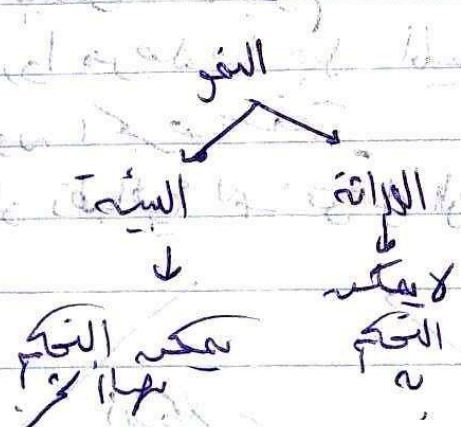 النمو
الوراثة
البيئة
لا يمكن
التحكم
به
يمكن التحكم
بها